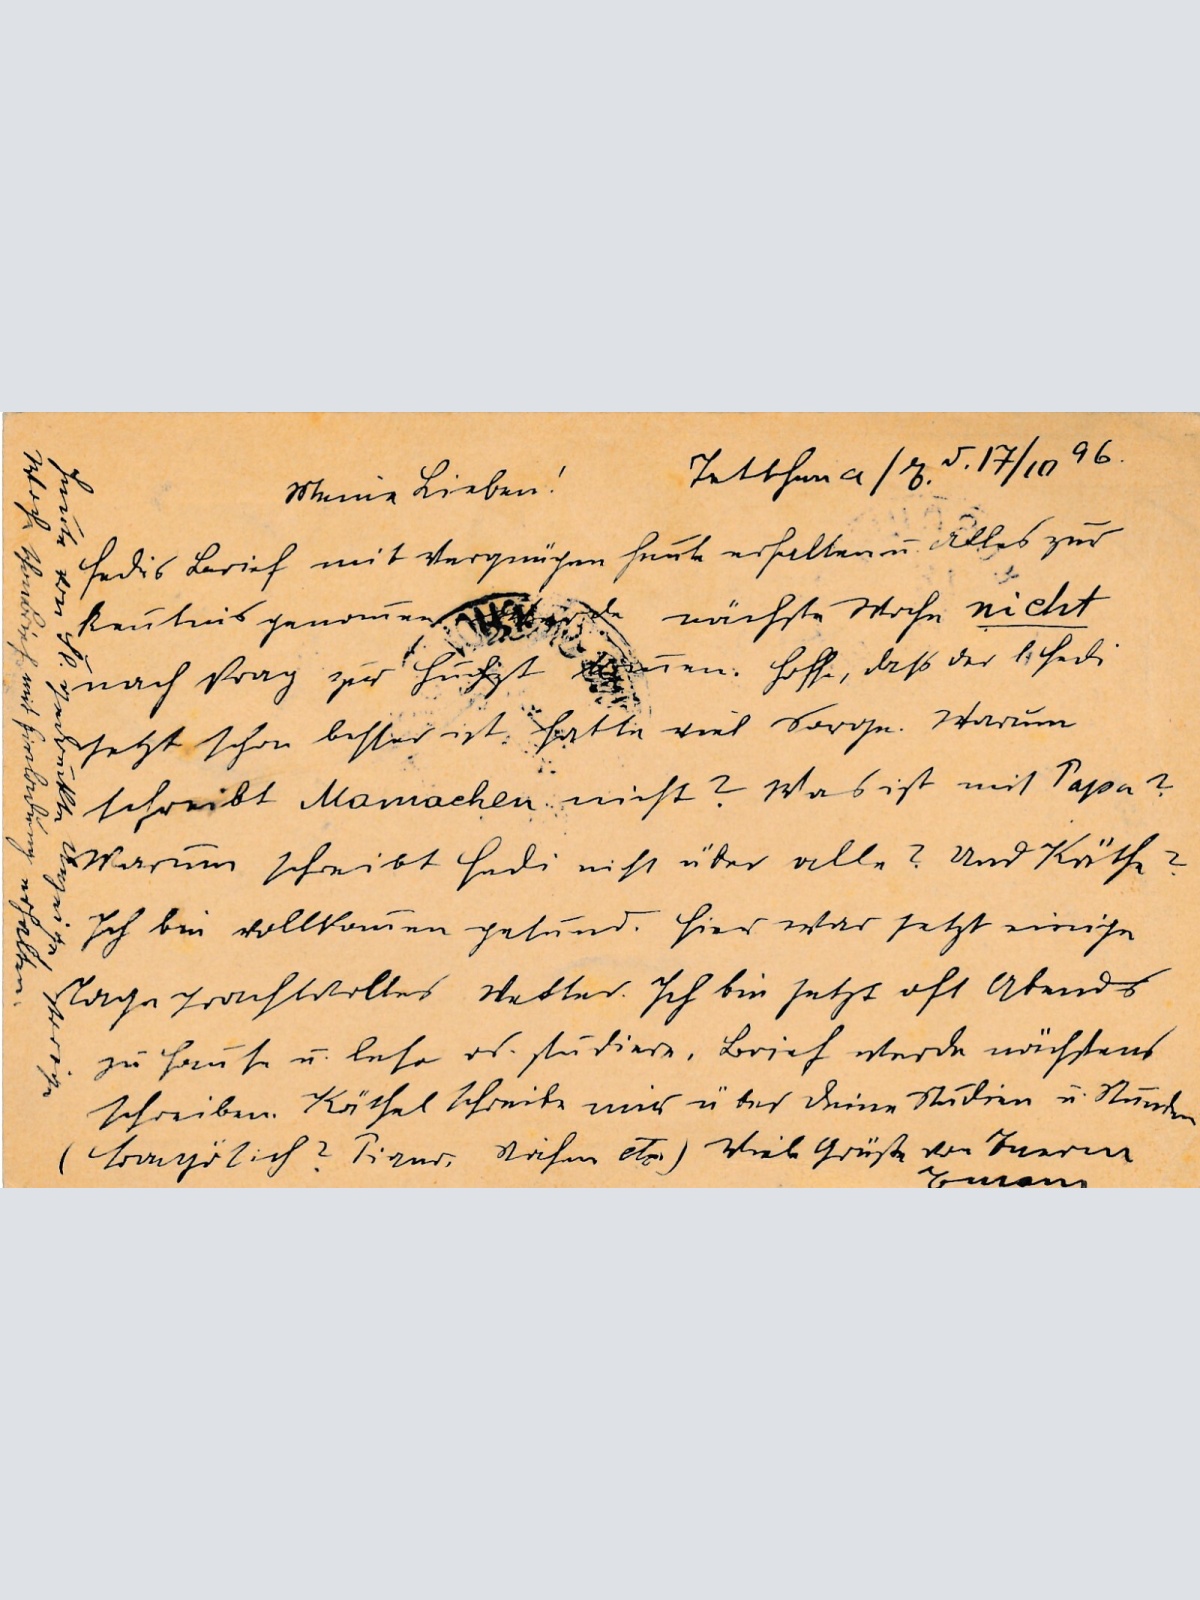 Tetschen a/E. d. 17/10 96.
Meine Lieben!
Hedis Brief mit Vergnügen heute erhalten u. Alles zur
Kenntnis genommen. Werde nächste Woche nicht
nach Prag zur kommen. Hoffe, daß der l. Hedi
jetzt schon besser ist. Hatte viel Sorge. Warum
schreibt Mamachen nicht? Was ist mit Papa?
Warum schreibt Hedi nicht über alle? Und Käthe?
Ich bin vollkommen gesund. Hier war jetzt einige
Tage prachtvolles Wetter. Ich bin jetzt oft Abends
zu Hause u. lese od. studiere. Brief werde nächstens
schreiben. Käthel schreibe mir über Deine Studien u. Stunden
(französisch? Piano, Nähen etc.) Viele Grüße von Euerm
Heute von
mit erhalten.